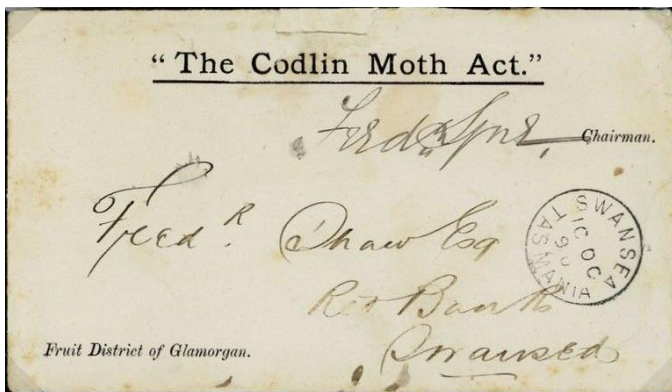 "The Codlin Moth Act."
Chairman.
Fred R. Shaw Esq
Red Bank
Swansea
SWANSEA
OC
90
TASMANIA
Fruit District of Glamorgan.